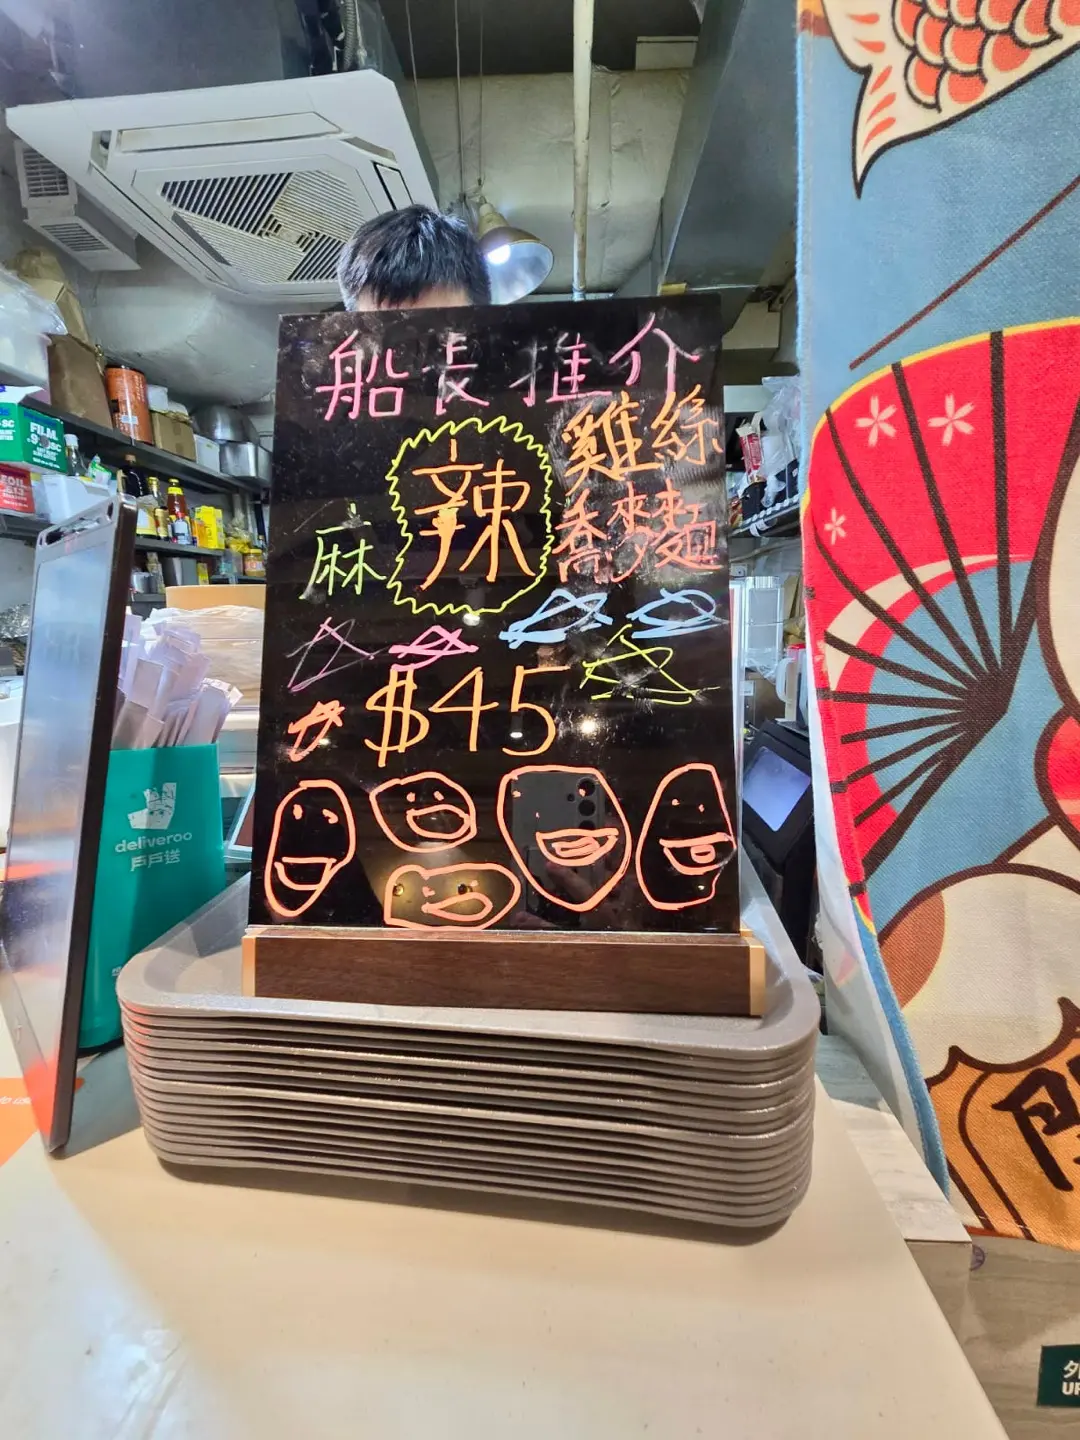 船長推介
麻辣
雞絲
蕎麥麵
$45
deliveroo
戶戶送
FILM
FOIL